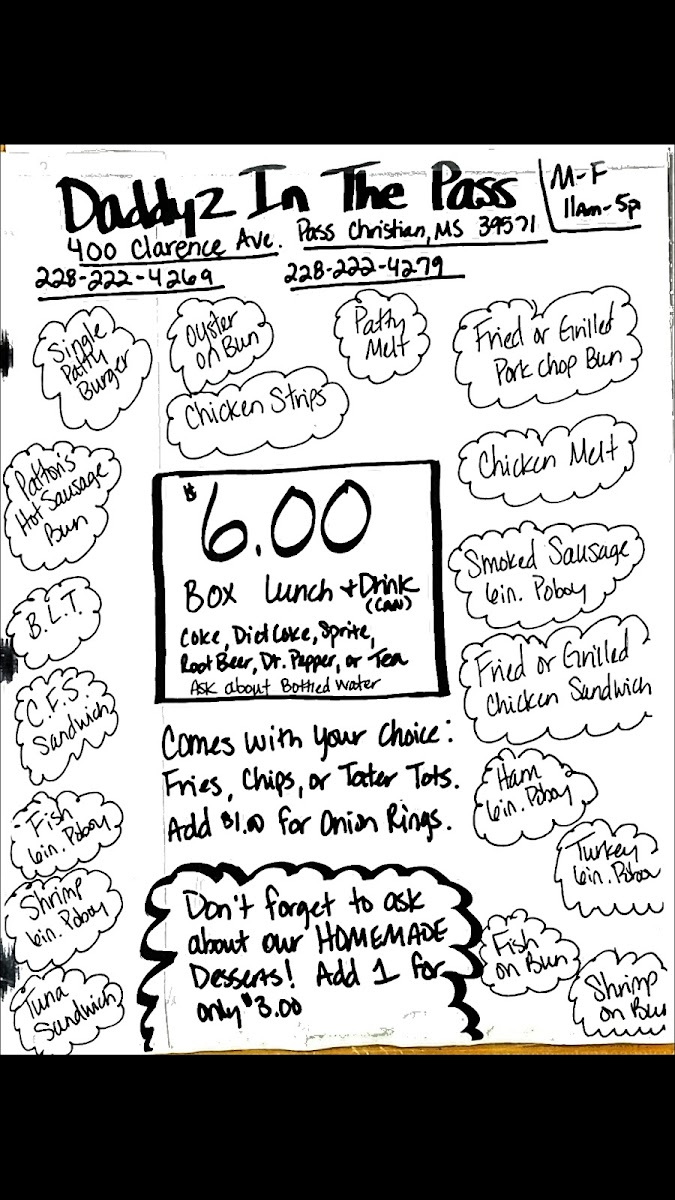 Daddyz In The Pass
M-F
11am-5p
400 Clarence Ave. Pass Christian, MS 39571
228-222-4269
228-222-4279
Single
Patty
Burger
Oyster
on Bun
Patty
Melt
Fried or Grilled
Pork Chop Bun
Chicken Strips
Patton's
Hot Sausage
Bun
Chicken Melt
$6.00
Box Lunch + Drink
(CAN)
Coke, Diet Coke, Sprite,
Root Beer, Dr. Pepper, or Tea
Ask about Bottled Water
Smoked Sausage
6in. Poboy
B.L.T.
Fried or Grilled
Chicken Sandwich
C.F.S.
Sandwich
Comes with your choice:
Fries, Chips, or Tater Tots.
Add $1.00 for Onion Rings.
Ham
6in. Poboy
Fish
6in. Poboy
Turkey
6in. Poboy
Shrimp
6in. Poboy
Don't forget to ask
about our HOMEMADE
Desserts! Add 1 for
only $3.00
Fish
on Bun
Shrimp
on Bun
Tuna
Sandwich